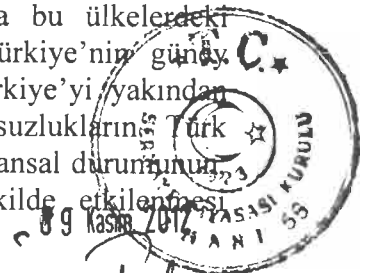 a bu ülkelerdeki
ürkiye'nin güney
rkiye'yi yakından
suzlukların Türk
ansal durumunun
kilde etkilenmesi
T.C.
KURULU
09 Kasım 2012